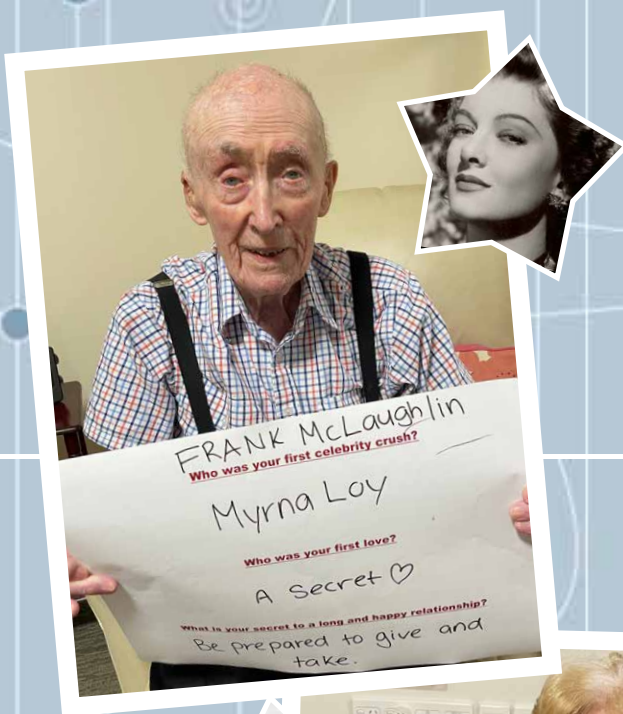 FRANK McLaughlin
Who was your first celebrity crush?
Myrna Loy
Who was your first love?
A Secret ♡
What is your secret to a long and happy relationship?
Be prepared to give and
take.